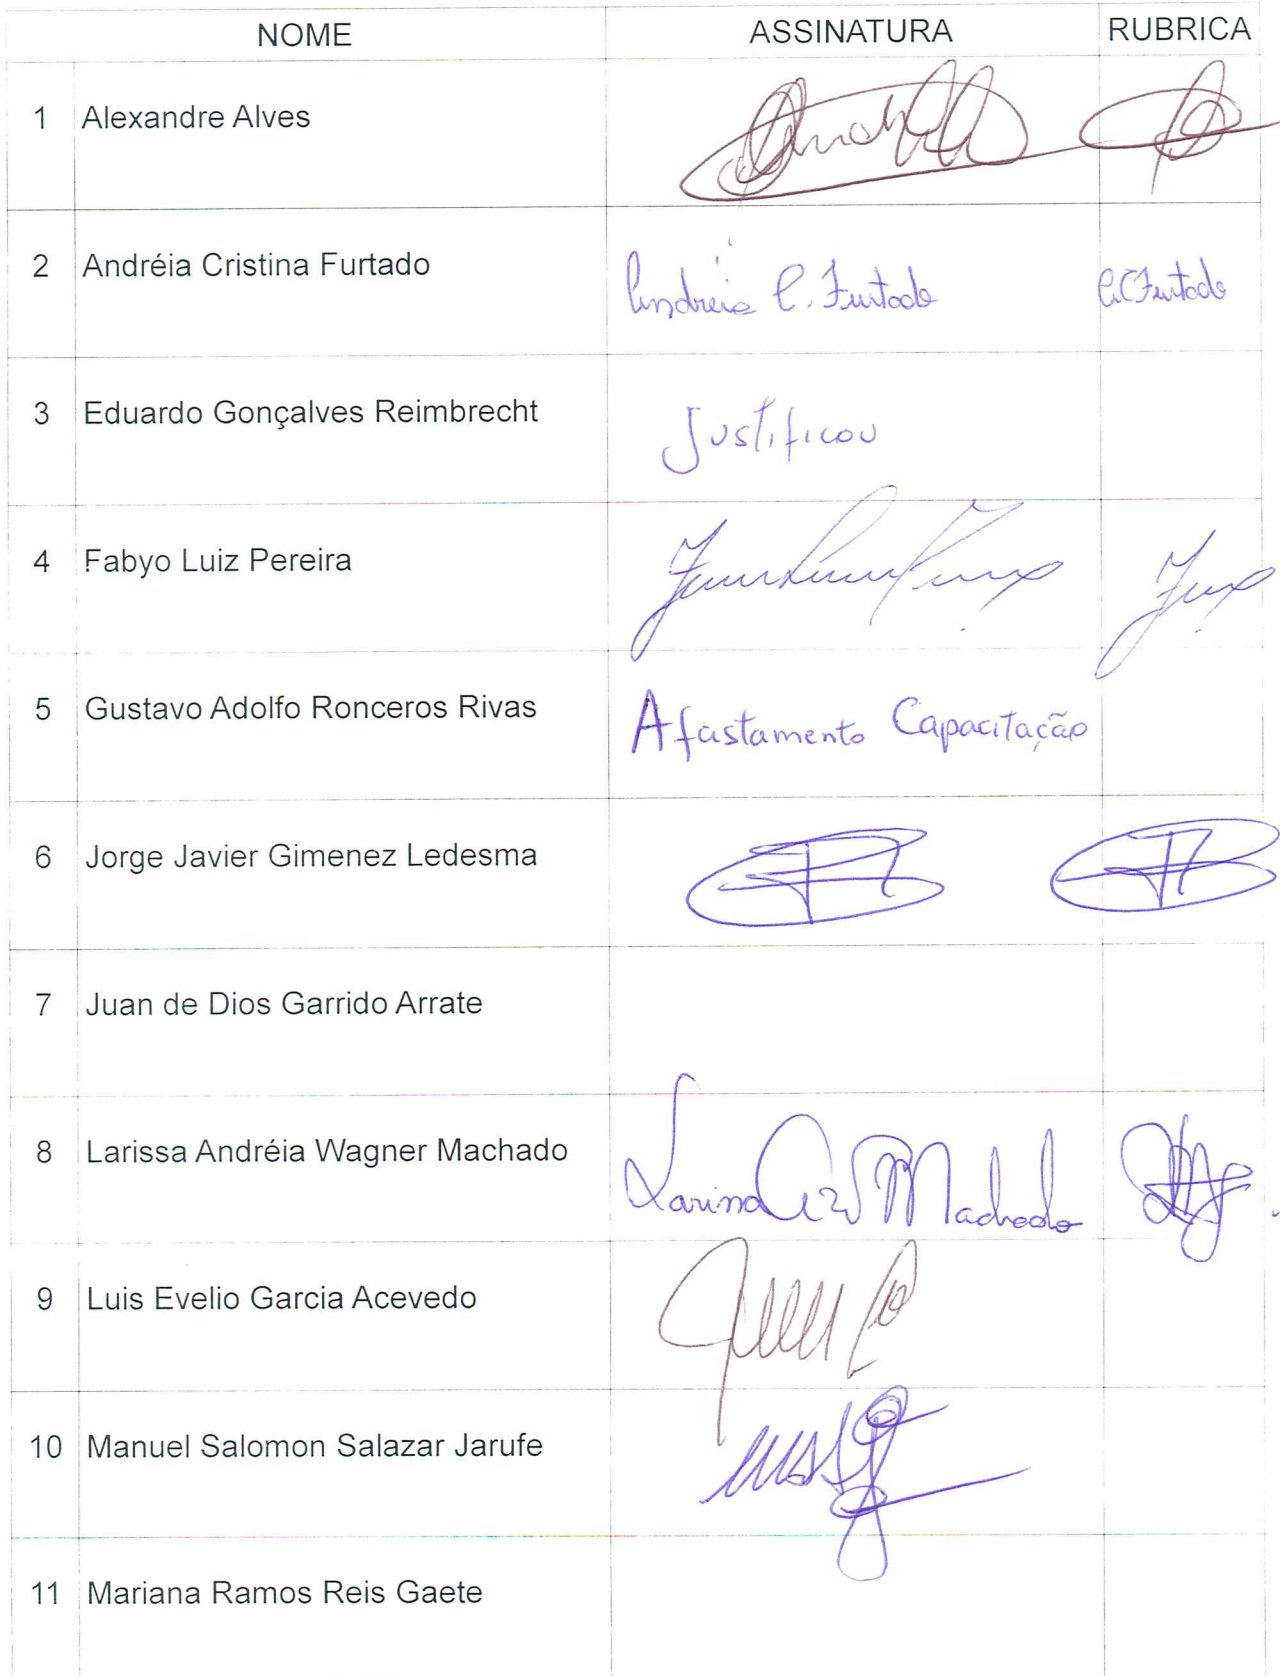 NOME ASSINATURA RUBRICA
1 Alexandre Alves
2 Andréia Cristina Furtado Andréia C. Furtado A.C.Furtado
3 Eduardo Gonçalves Reimbrecht Justificou
4 Fabyo Luiz Pereira
5 Gustavo Adolfo Ronceros Rivas Afastamento Capacitação
6 Jorge Javier Gimenez Ledesma
7 Juan de Dios Garrido Arrate
8 Larissa Andréia Wagner Machado Larissa A W Machado
9 Luis Evelio Garcia Acevedo
10 Manuel Salomon Salazar Jarufe
11 Mariana Ramos Reis Gaete